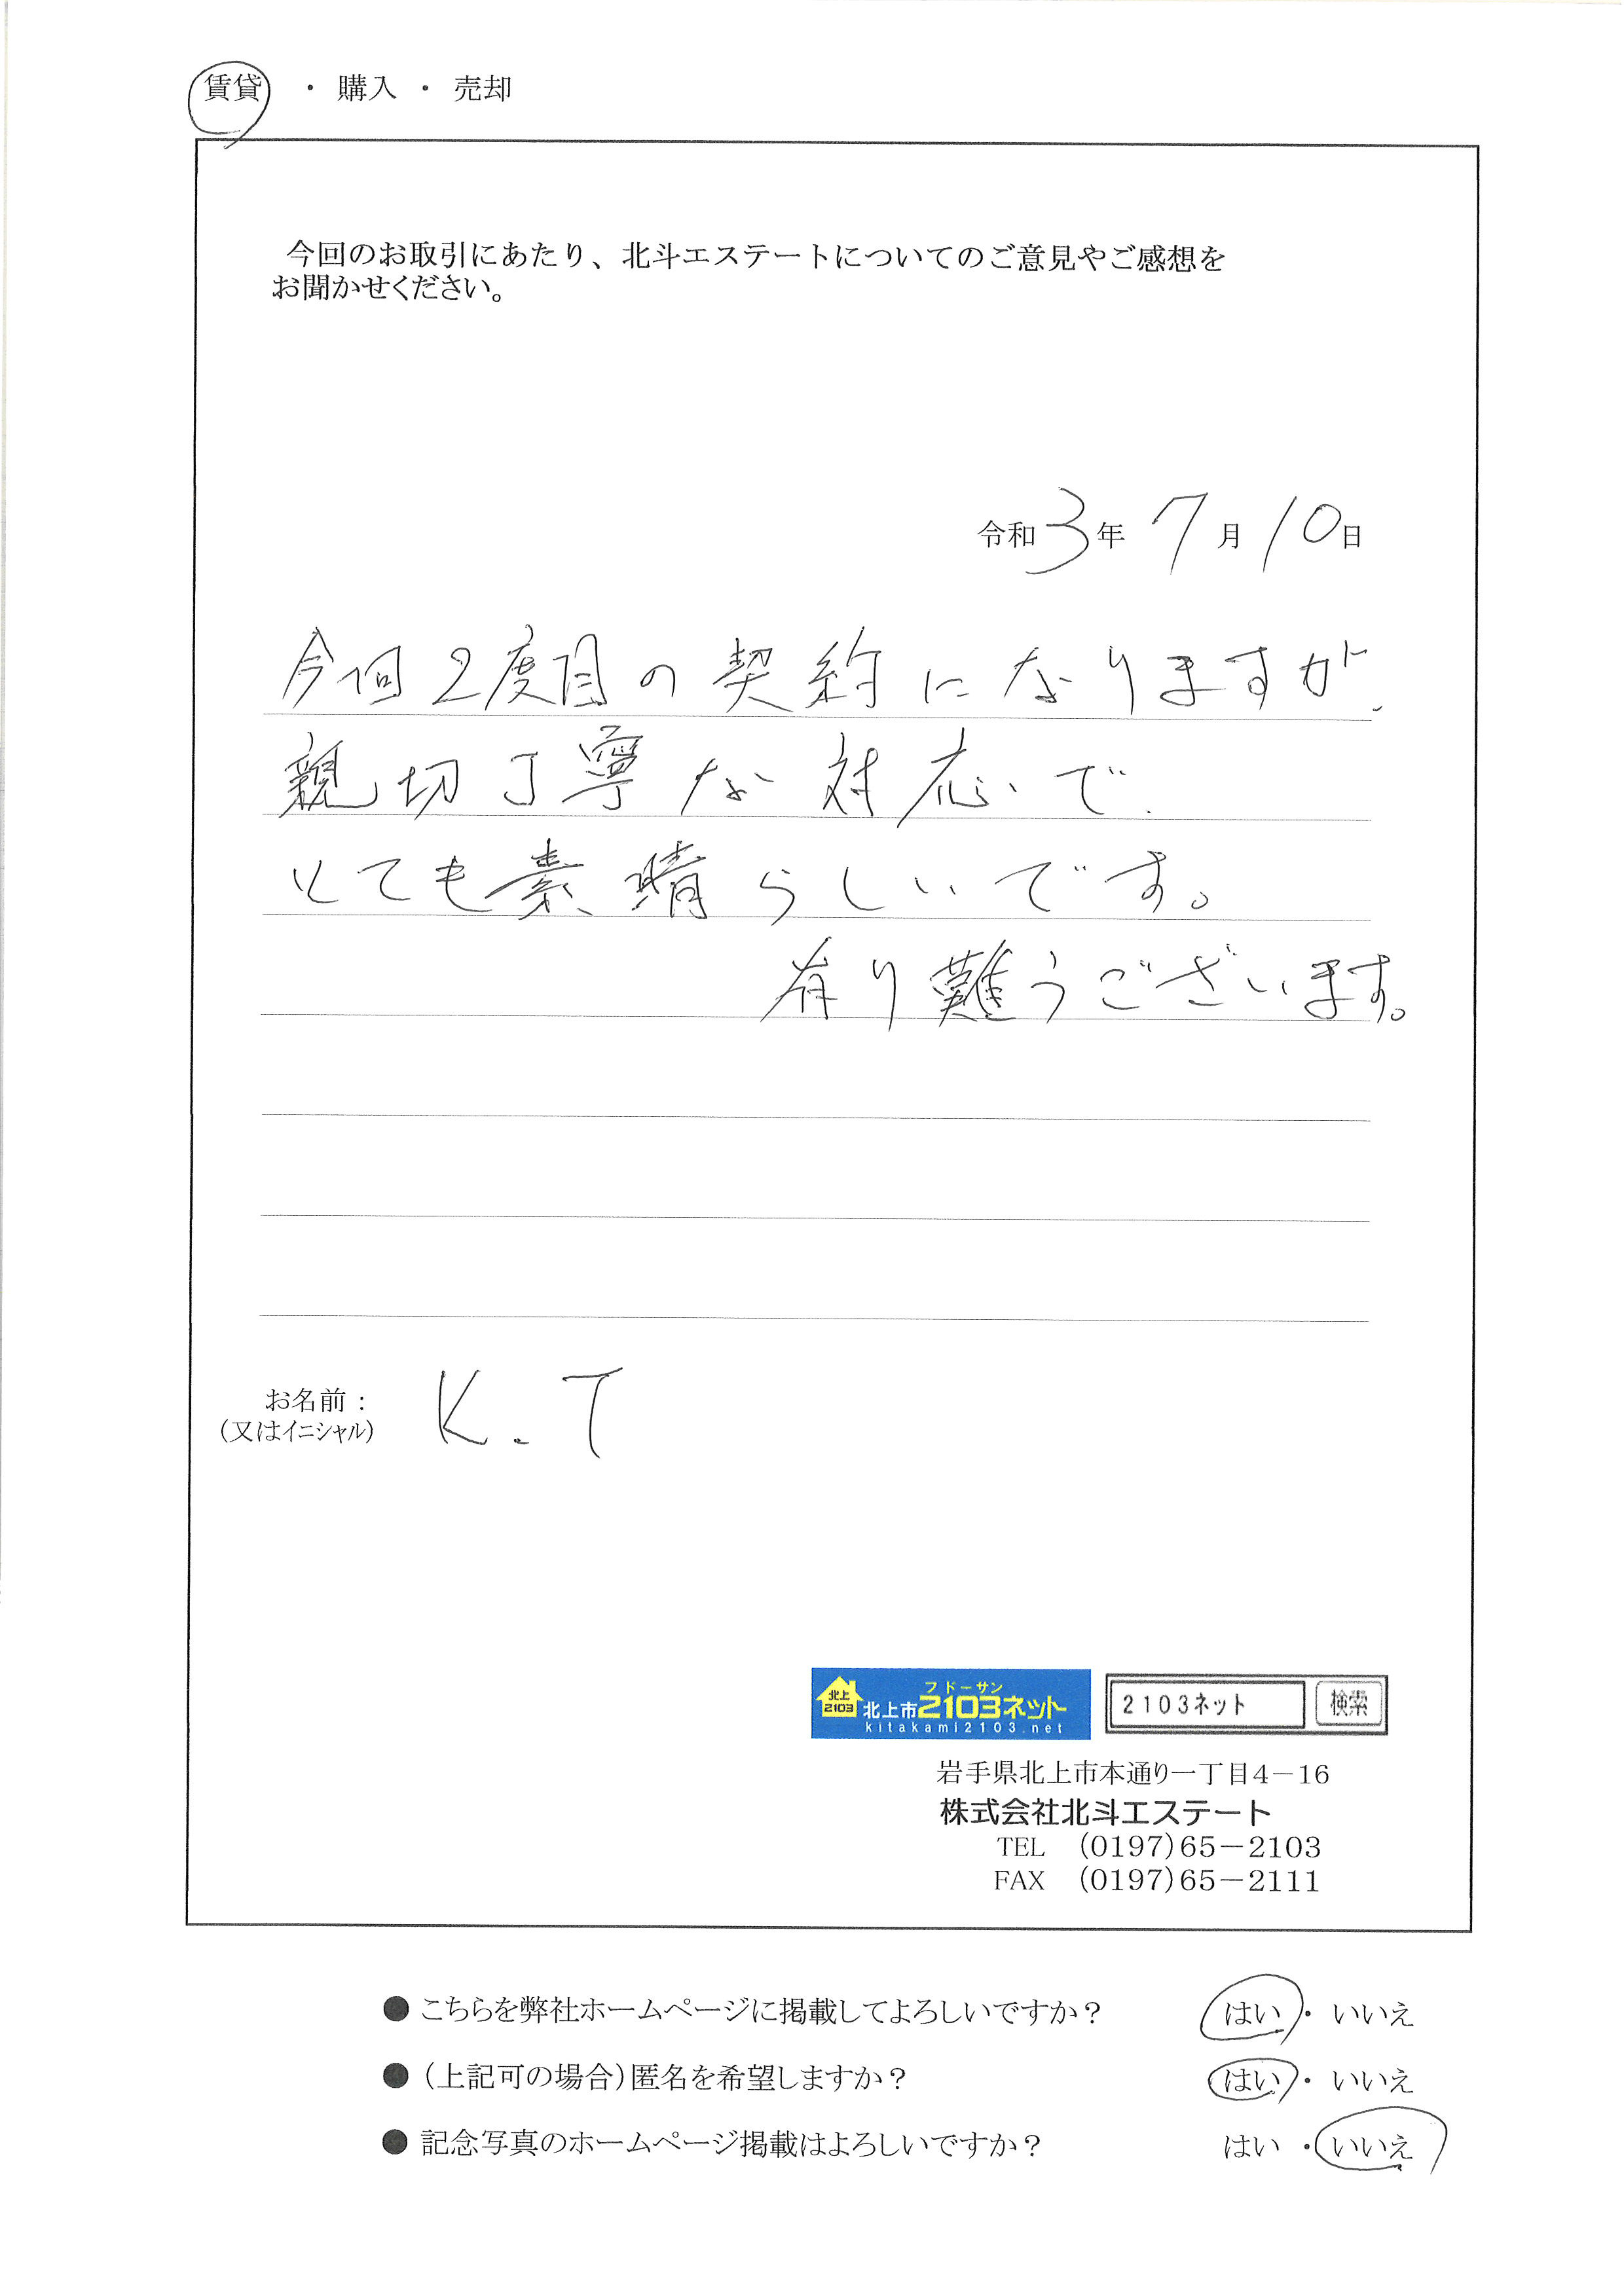 賃貸 ・ 購入 ・ 売却
今回のお取引にあたり、北斗エステートについてのご意見やご感想を
お聞かせください。
令和3年7月10日
今回2度目の契約になりますが、
親切丁寧な対応で、
とても素晴らしいです。
有り難うございます。
お名前： K.T
（又はイニシャル）
フドーサン
北上 2103 北上市2103ネット
kitakami2103.net
2103ネット 検索
岩手県北上市本通り一丁目4－16
株式会社北斗エステート
TEL (0197)65－2103
FAX (0197)65－2111
●こちらを弊社ホームページに掲載してよろしいですか？ はい・いいえ
●（上記可の場合）匿名を希望しますか？ はい・いいえ
●記念写真のホームページ掲載はよろしいですか？ はい・いいえ